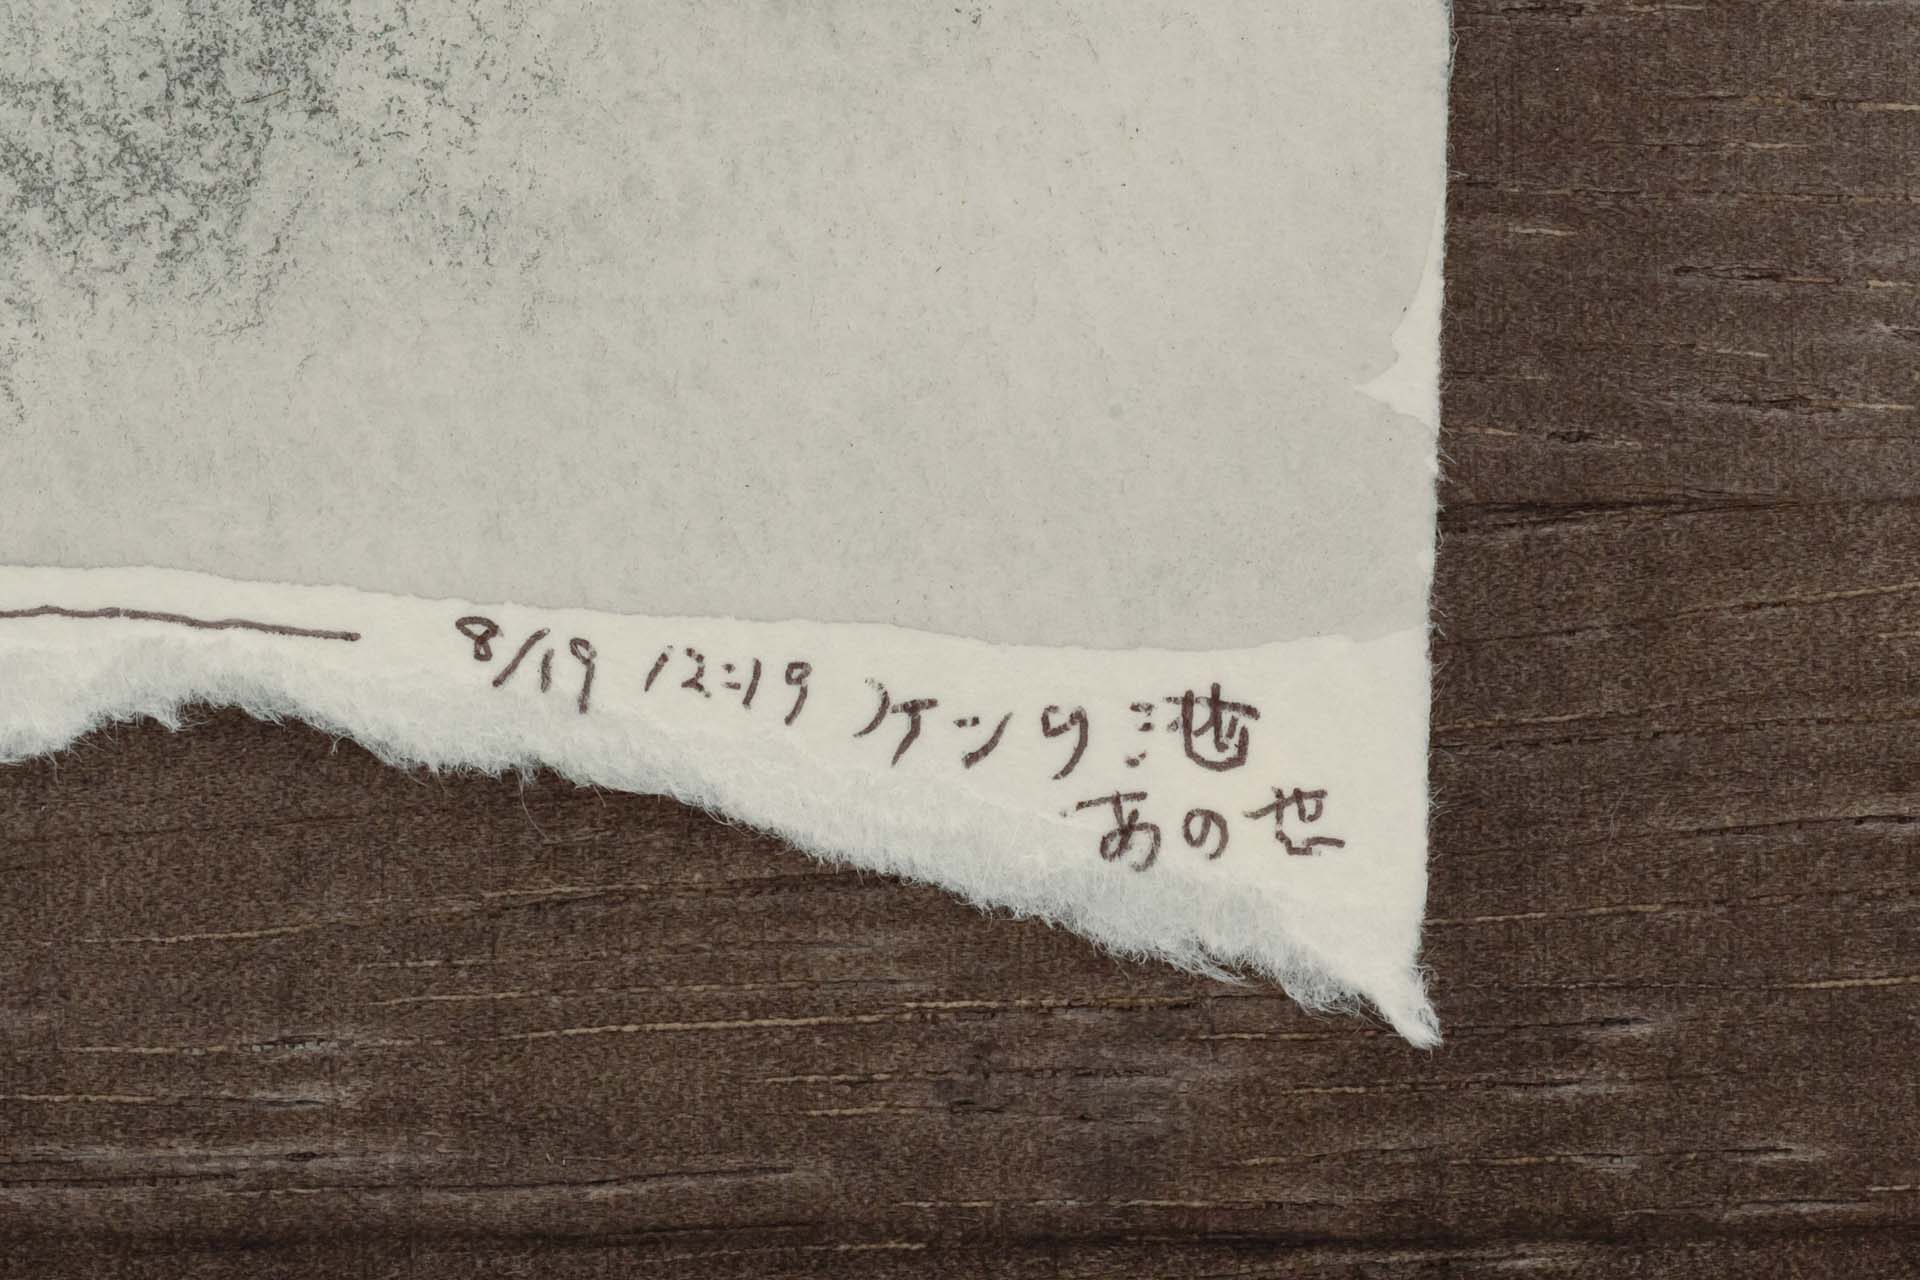 8/19 12:19 ケンリ池
あの世